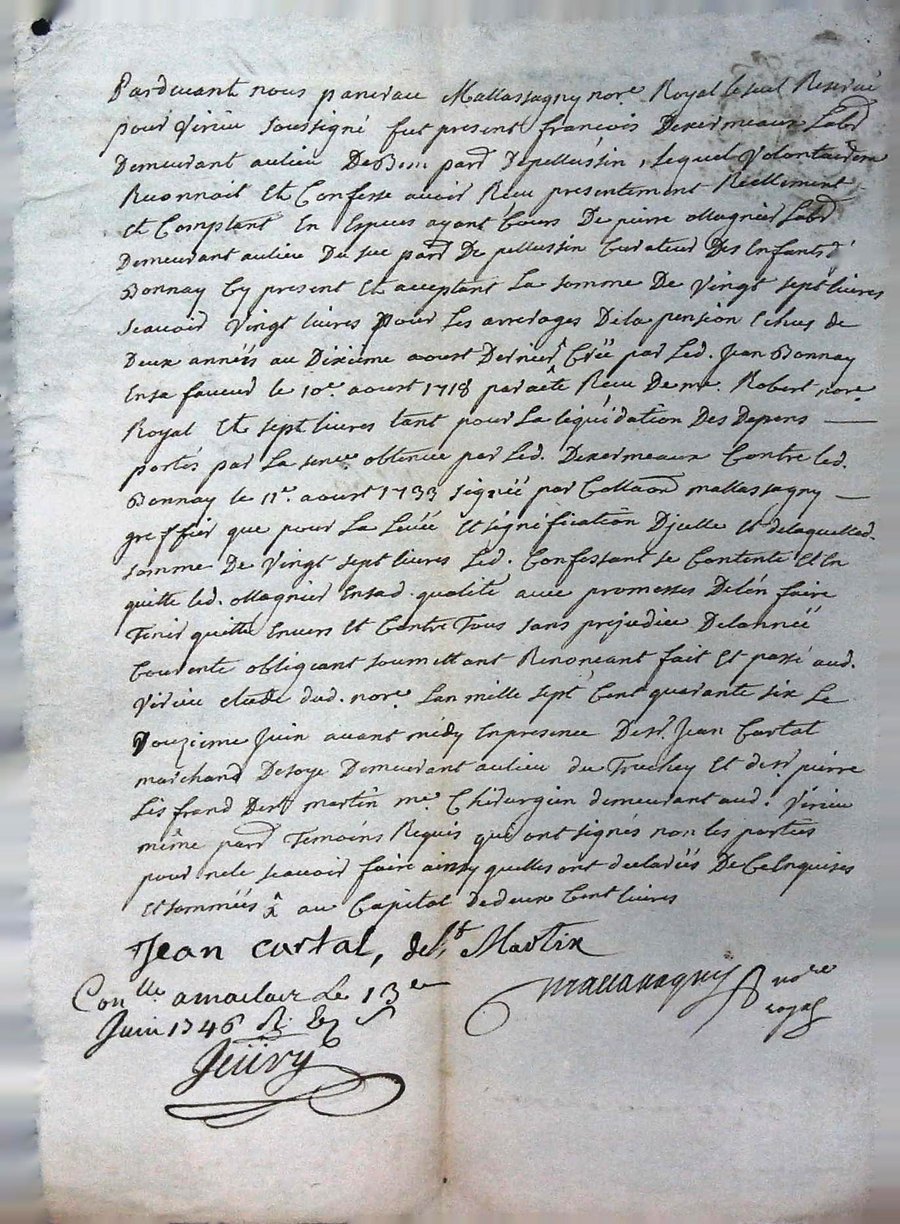 Pardevant nous pancrace Mallassagny nore. Royal le seul Reservé
pour Virieu soussigné fut present françois Dexermeaux Labr
Demeurant au lieu De Bem pard Depellussin, lequel Volontairem
Reconnoit Et Confesse avoir Recu presentement Reellement
Et Comptant En Especes ayant Cours De pierre Magnier Labr
Demeurant au lieu Du suc pard De pellussin Curateur Des Enfants d
Bonnay Cy present Et acceptant La somme De Vingt sept livres
scavoir Vingt livres pour Les arrerages Dela pension Echus de
Deux années au Dixieme aoust Dernier Créé par Led. Jean Bonnay
Ensa faveur le 10e. aoust 1718 par acte Recu De me. Robert nore.
Royal Et sept livres tant pour La liquidation Des Depens
portés par La sence obtenue par Led. Dexermeaux Contre led.
Bonnay le 11e. aoust 1733 signée par Mallassagny
greffier que pour La Levée Et signification Djcelle Et delaquelled.
somme De Vingt sept livres Led. Confessant se Contente Et En
quitte led. Magnier Ensad. qualité avec promesses Delen faire
Tenir quitte Envers Et Contre Tous sans prejudice Delannéé
Courente obligeant soumettant Renonceant fait Et passé aud.
Virieu Etude dud. nore. Lan mille sept Cent quarante six Le
Douzieme Juin avant midy Enpresence De sr. Jean Cartal
marchand Desoye Demeurant aulieu du Truchey Et de sr. pierre
Lisfrand De st martin me Chirurgien demeurant aud. Virieu
même pard Temoins Requis qui ont signés non les parties
pour nele scavoir faire ainsy quelles ont declarées De Ce Enquises
Et sommées au Capital dedeux Cent livres
Jean cartal, de st Martin
Mallassagny nore
royal
Conlle a maclas le 13e
Juin 1746 R.
Jeüvry